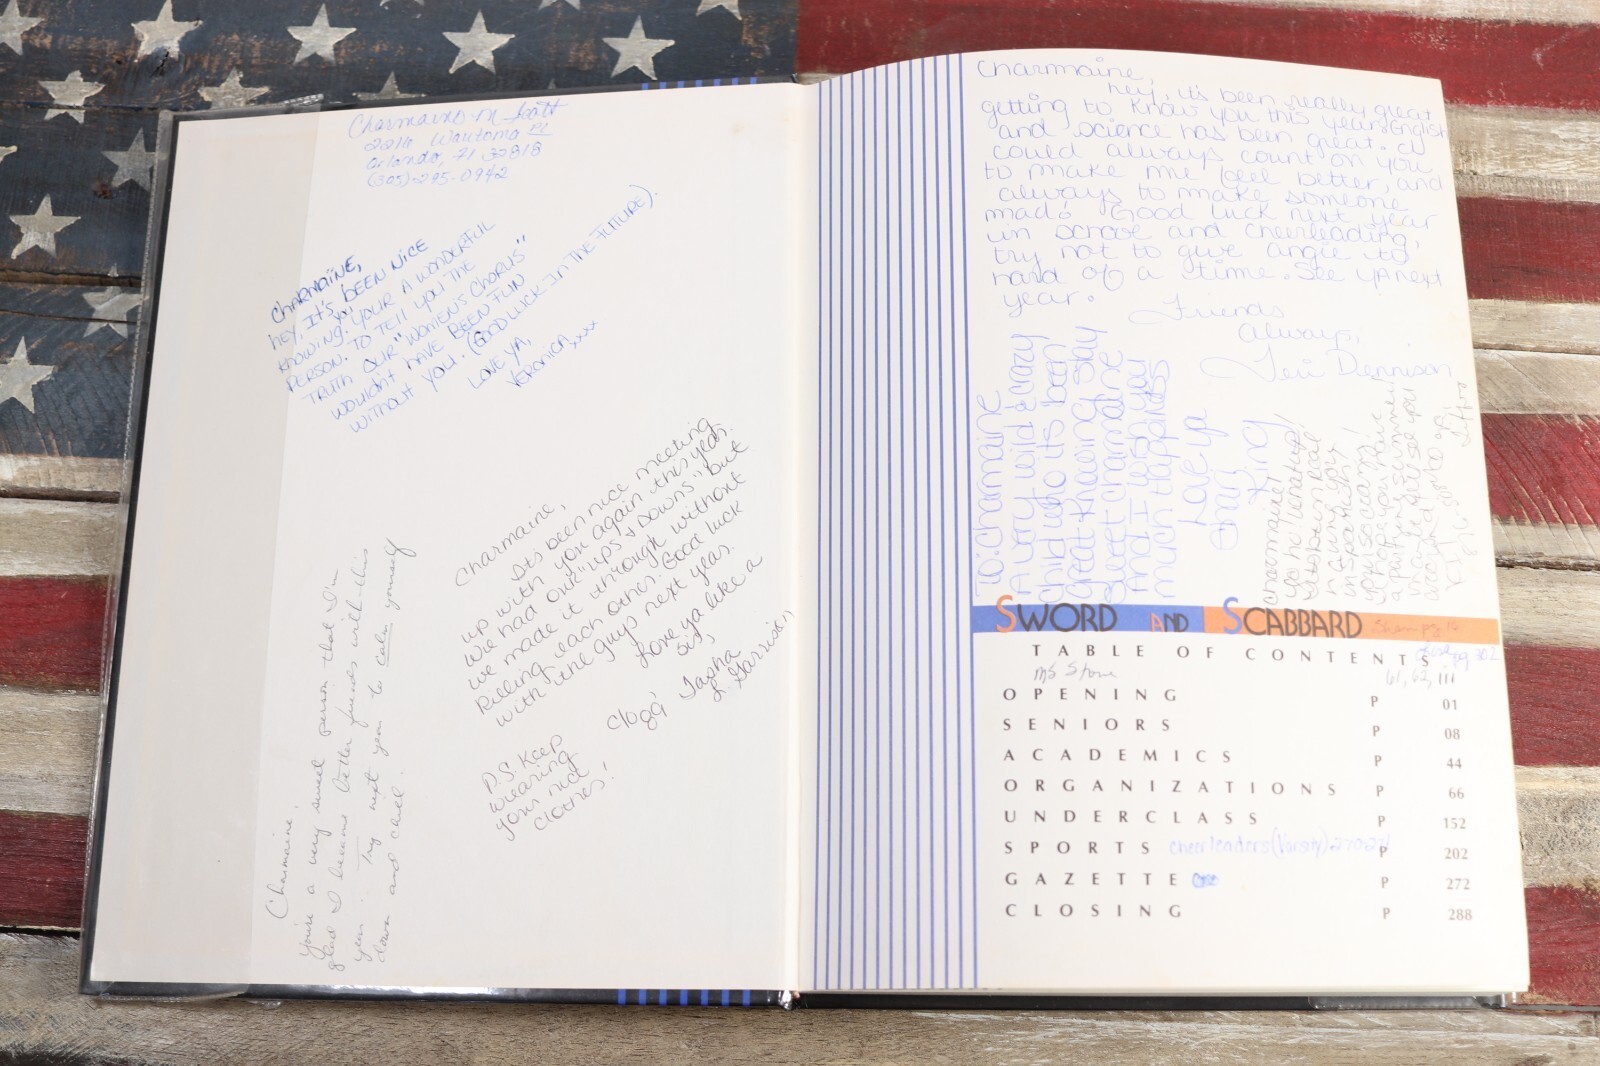 Charmaine M Scott
2216 Wautoma PL
Orlando, Fl 32818
(305)-295-0942
CHARMAINE,
HEY, IT'S BEEN NICE
KNOWING YOU. YOUR A WONDERFUL
PERSON. TO TELL YOU THE
TRUTH OUR "WOMEN'S CHORUS"
WOULDN'T HAVE BEEN FUN
WITHOUT YOU. (GOOD LUCK IN THE FUTURE).
LOVE YA,
VERONICA, xxxx
Charmaine,
Its been nice meeting
up with you again this year.
We had our "ups & downs" but
we made it through without
killing each other. Good luck
with the guys next year.
Love ya like a
sis,
Tasha
L Garrison
c/o
89
P.S. Keep
wearing
your nice
clothes!
Charmaine,
You're a very sweet person that I'm
glad I became better friends with this
year. Try next year to calm yourself
down and chill.
Charmaine,
hey, it's been really great
getting to know you this year. English
and science has been great. I
could always count on you
to make me feel better, and
always to make someone
mad! Good luck next year
in school and cheerleading,
try not to give angie to
hard of a time. See ya next
year.
Friends
Always,
Teri Dennison
To: Charmaine
A very wild & crazy
child who its been
great knowing Stay
Sweet Charmaine
And I wish you
much happiness
Love ya
King
Charmaine!
in Spanish!
SWORD AND SCABBARD Sham pg.14
TABLE OF CONTENTS Lisa pg 302
Ms Stone 61, 62, 111
OPENING P 01
SENIORS P 08
ACADEMICS P 44
ORGANIZATIONS P 66
UNDERCLASS P 152
SPORTS cheerleaders (Varsity) 270 271 P 202
GAZETTE P 272
CLOSING P 288